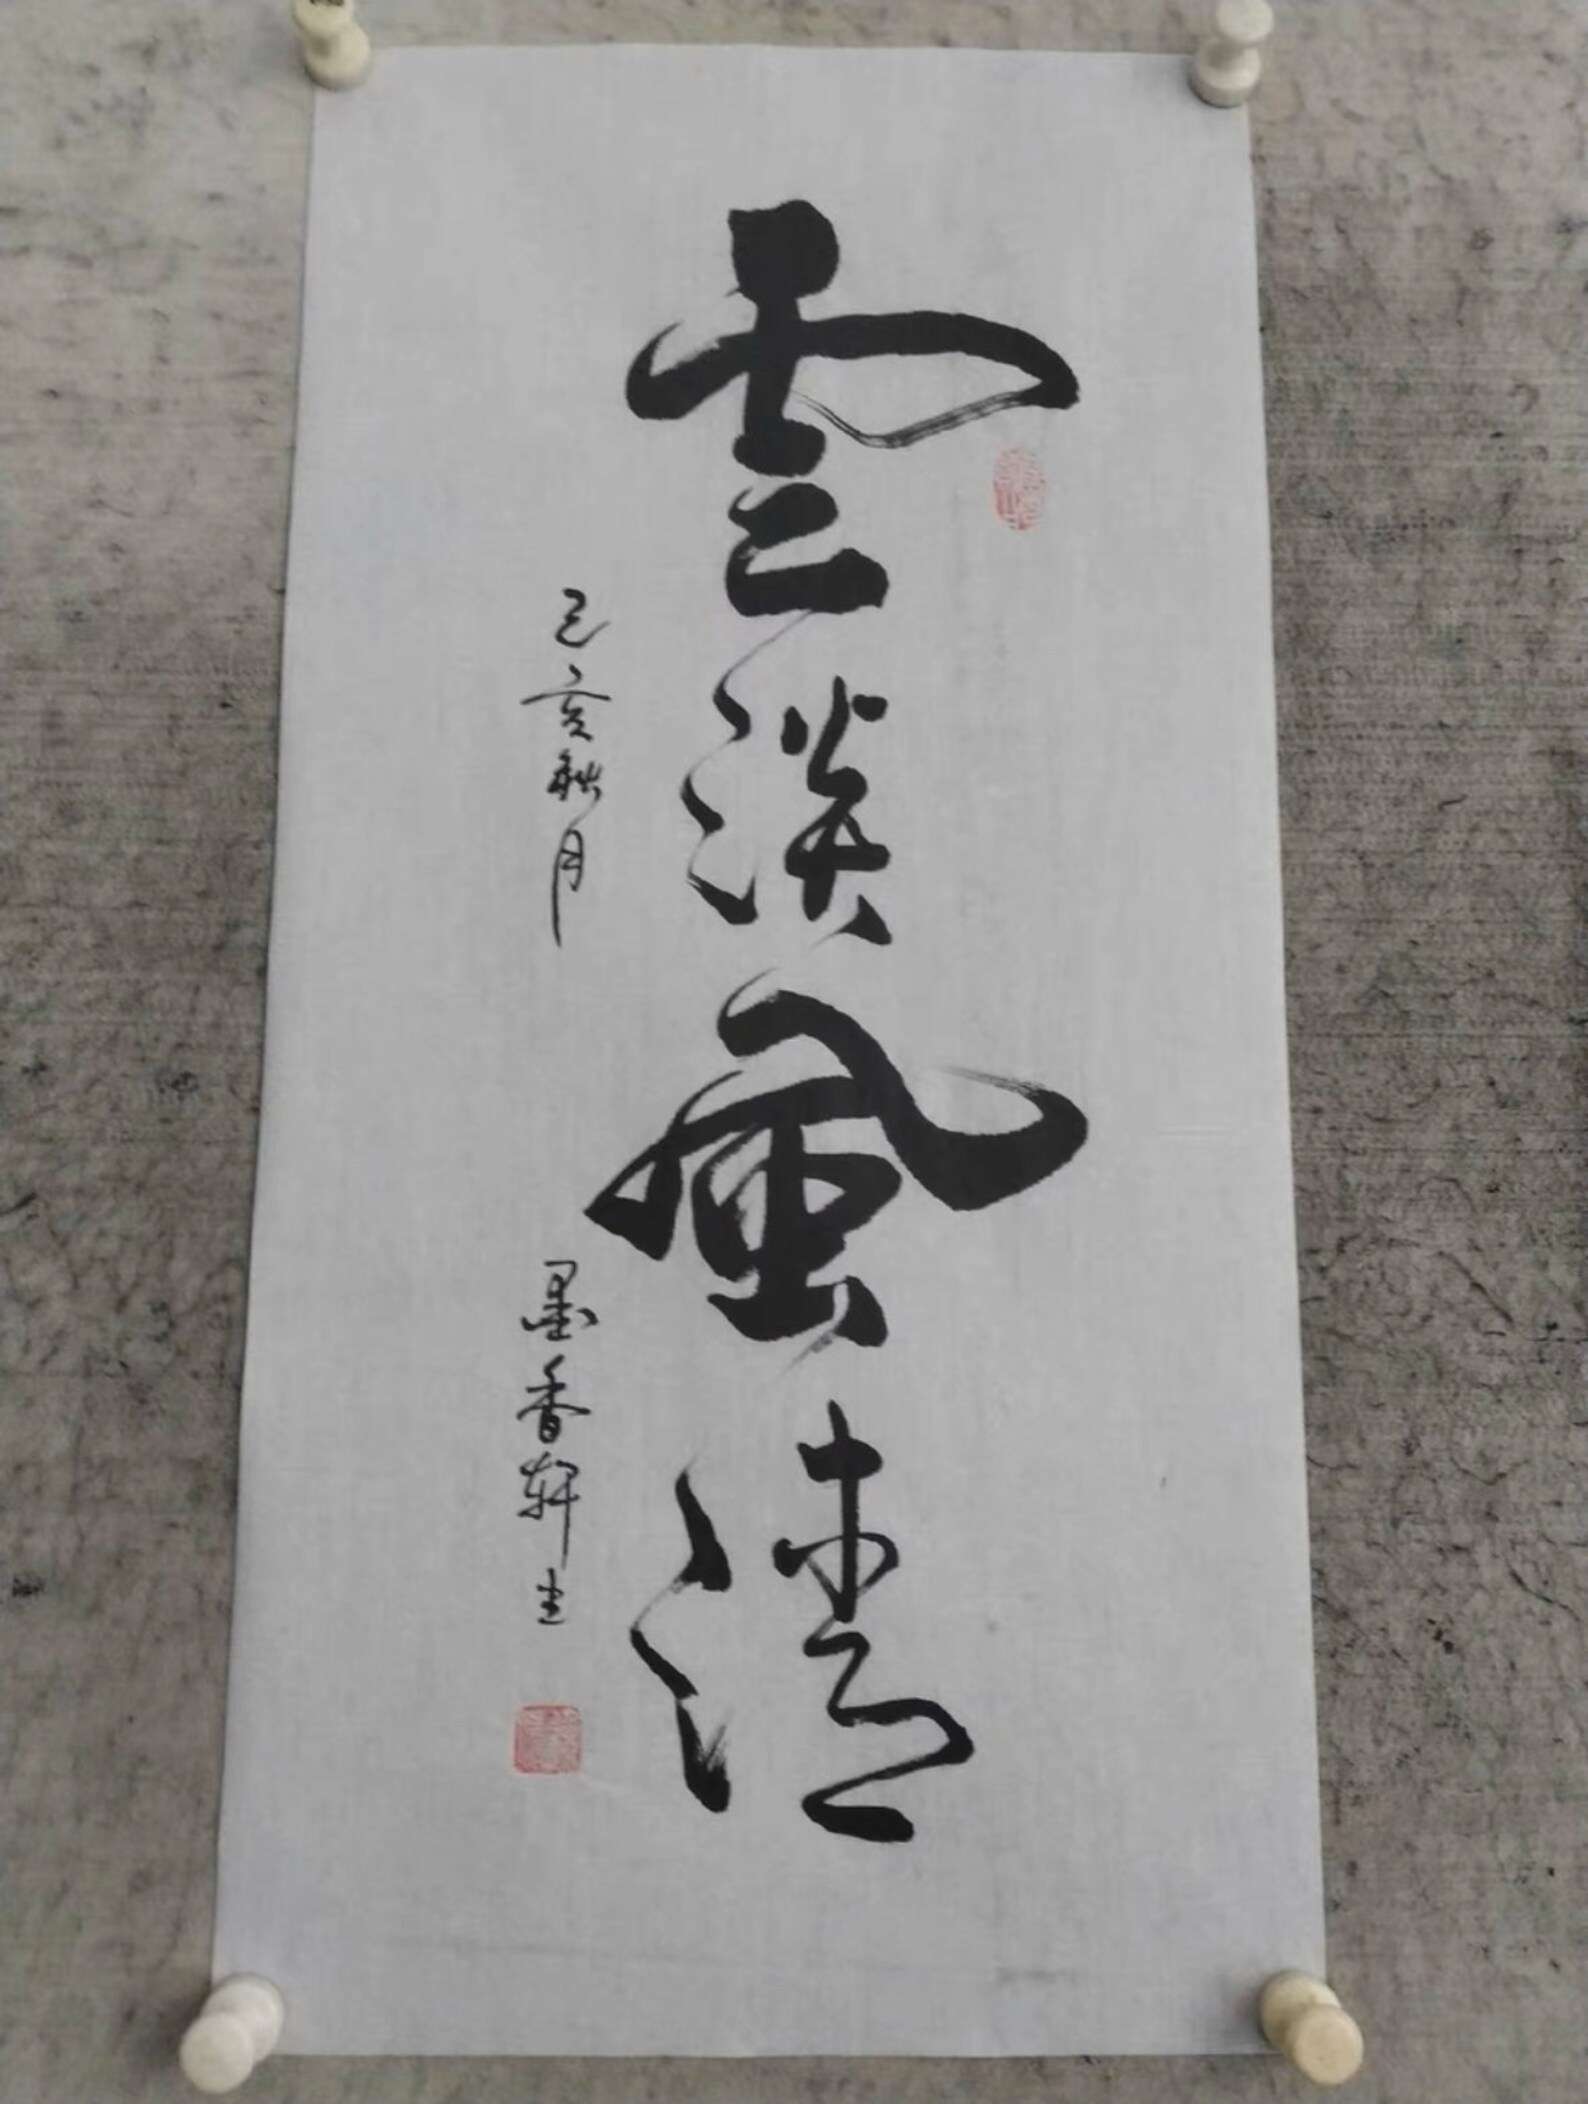 雲淡風清
己亥秋月 墨香軒主